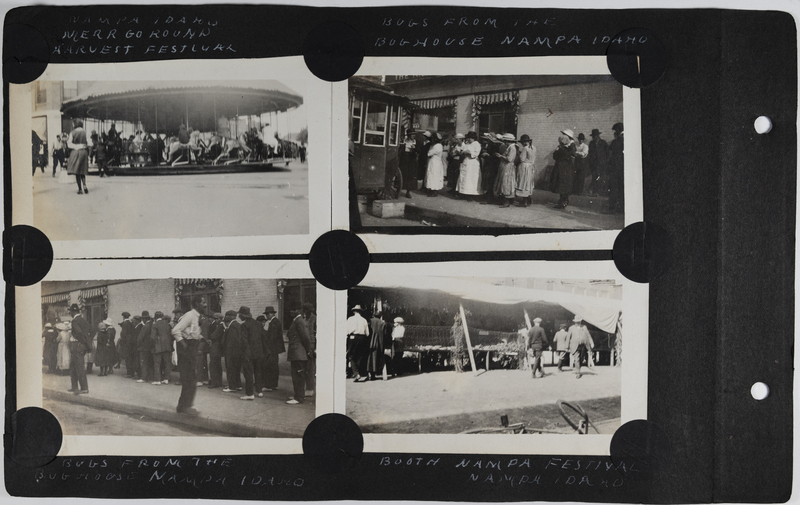 NAMPA IDAHO
MERR GO ROUND
HARVEST FESTIVAL
BUGS FROM THE
BUGHOUSE NAMPA IDAHO
BUGS FROM THE
BUGHOUSE NAMPA IDAHO
BOOTH NAMPA FESTIVAL
NAMPA IDAHO